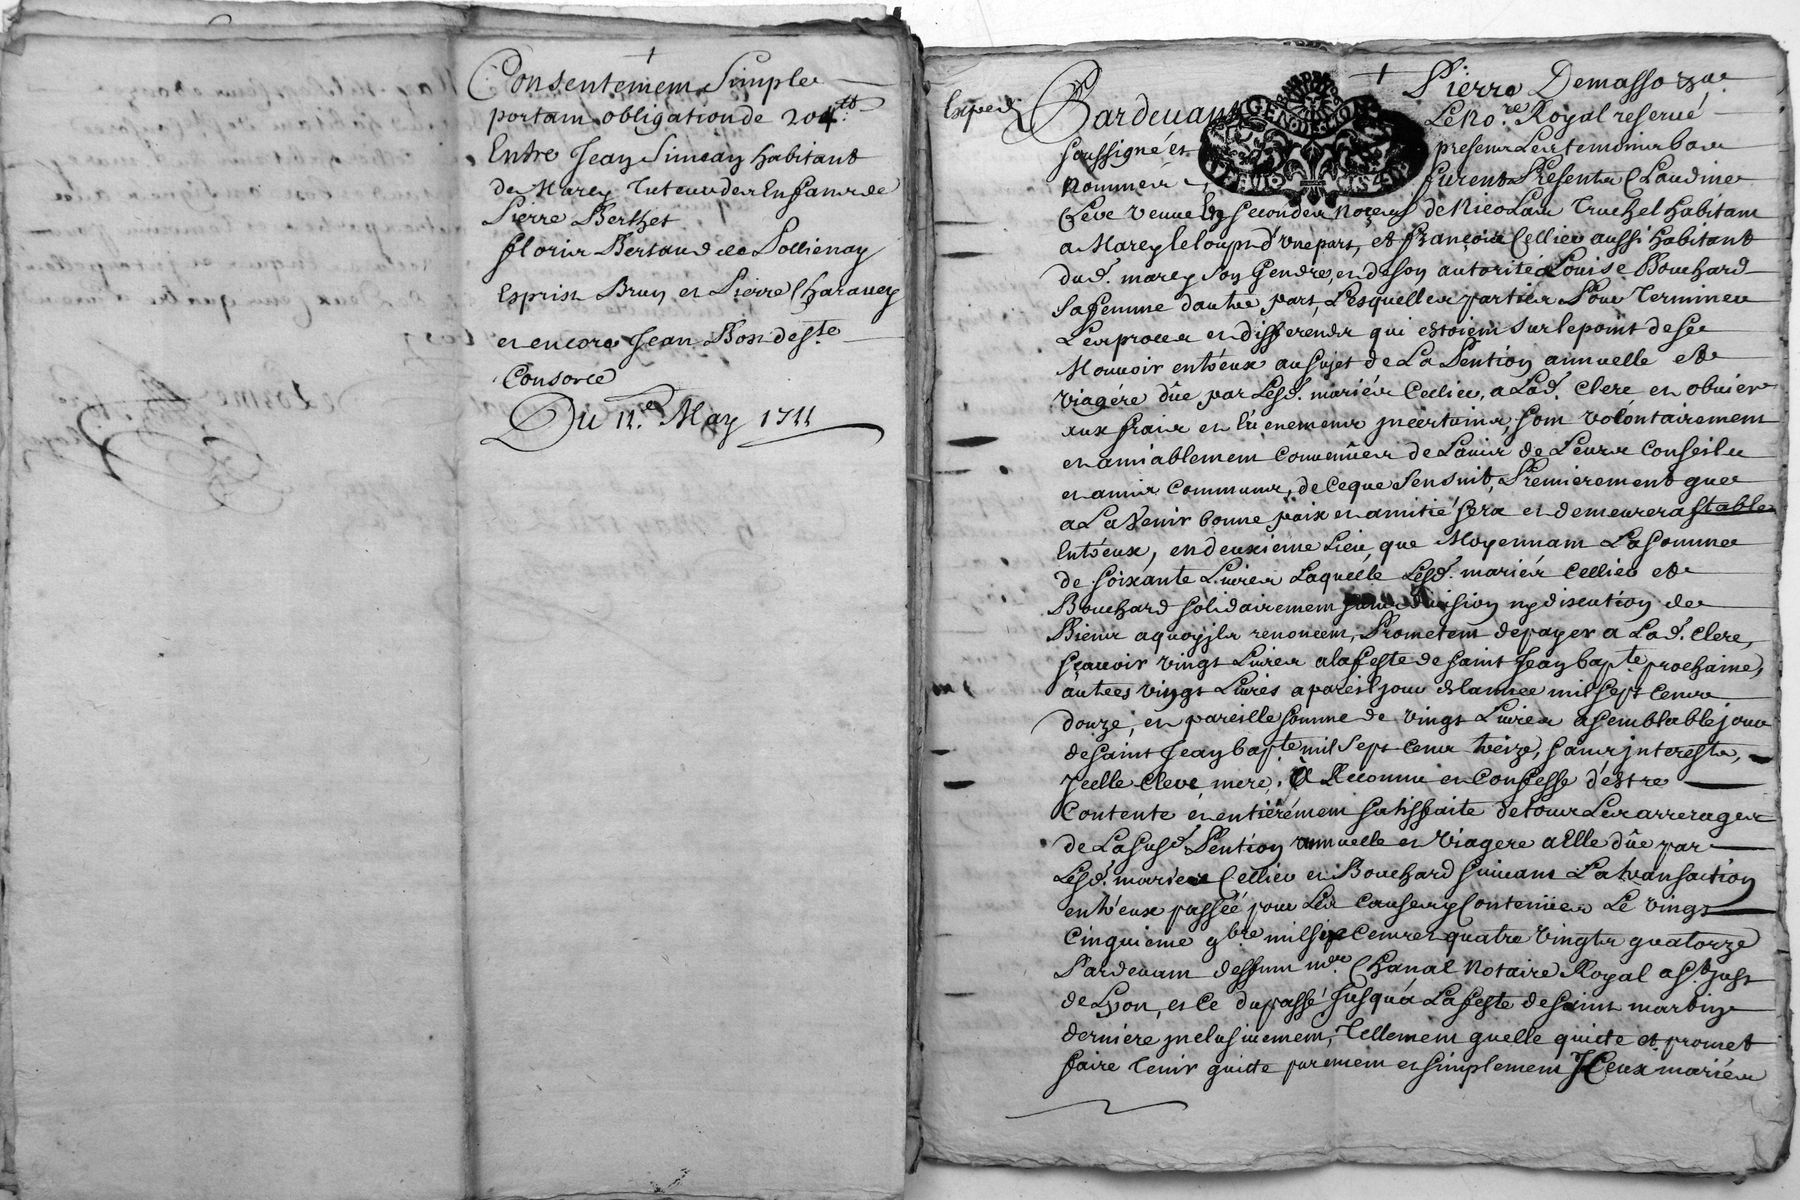 Consentement Simple
portant obligation de 204tt
Entre Jean Simean habitant
de Marey Tuteur des Enfans de
Pierre Berthet
floris Bertaud de Pollienay
Esprit Brun et Pierre Charavey
et encore Jean Bost de Ste
Consorce
Du 11e May 1711
Exped
Pierre Demasso
Pardevant Le No.re Royal reservé
soussigné et presens Les temoins bas
nommés furent Presentes Claudine
Clere veuve En secondes Noces de Nicolas Truchel habitant
a Marcy le loup d'vne part, et françois Cellier aussi habitant
dud. marcy son Gendre, et de son autorité Louise Bouchard
sa femme dautre part, Lesquelles parties Pour Terminer
Les proces et differends qui estoient sur le point de se
Mouvoir entr'eux au sujet de La Pention annuelle et
viagére dûe par Lesd. mariés Cellier, a Lad. Clere et obvier
aux frais et évenemens incertains, sont volontairement
et amiablement convenües de Lavis de Leurs Conseils
et amis communs, de ce que s'ensuit, Premierement que
a La Venir bonne paix et amitié sera et demeurera stable
Entr'eux, en deuxieme Lieu, que Moyennant La somme
de soixante Livres Laquelle Lesd. mariés Cellier et
Bouchard solidairement sans division ny discution de
Biens a quoy jls renoncent, Prometent de payer a Lad. Clere,
sçavoir vingt Livres a la feste de saint Jean bapte prochaine,
autres vingt Livres a pareil jour de lannee mil sept cens
douze, et pareille somme de vingt Livres a semblable jour
de saint Jean bapte mil sept cens treize, sans interests,
Jcelle Clere mere, A Reconnu et Confesse d'estre
Contente et entiérément satisffaite de tous Les arrerages
de La susd. Pention annuelle et Viagere a Elle dûe par
Lesd. mariés Cellier et Bouchard suivant La transaction
entr'eux passée pour Les causes y Contenües Le vingt
cinquieme 9bre mil six Cens et quatre Vingts quatorze
Pardevant deffunt mr. Chanal Notaire Royal a St. Just
de Lyon, et ce du passé Jusqu'à La feste de saint martin
derniere jnclusivement, Tellement quelle quitte et promet
faire Tenir quitte purement et simplement Jceux mariés